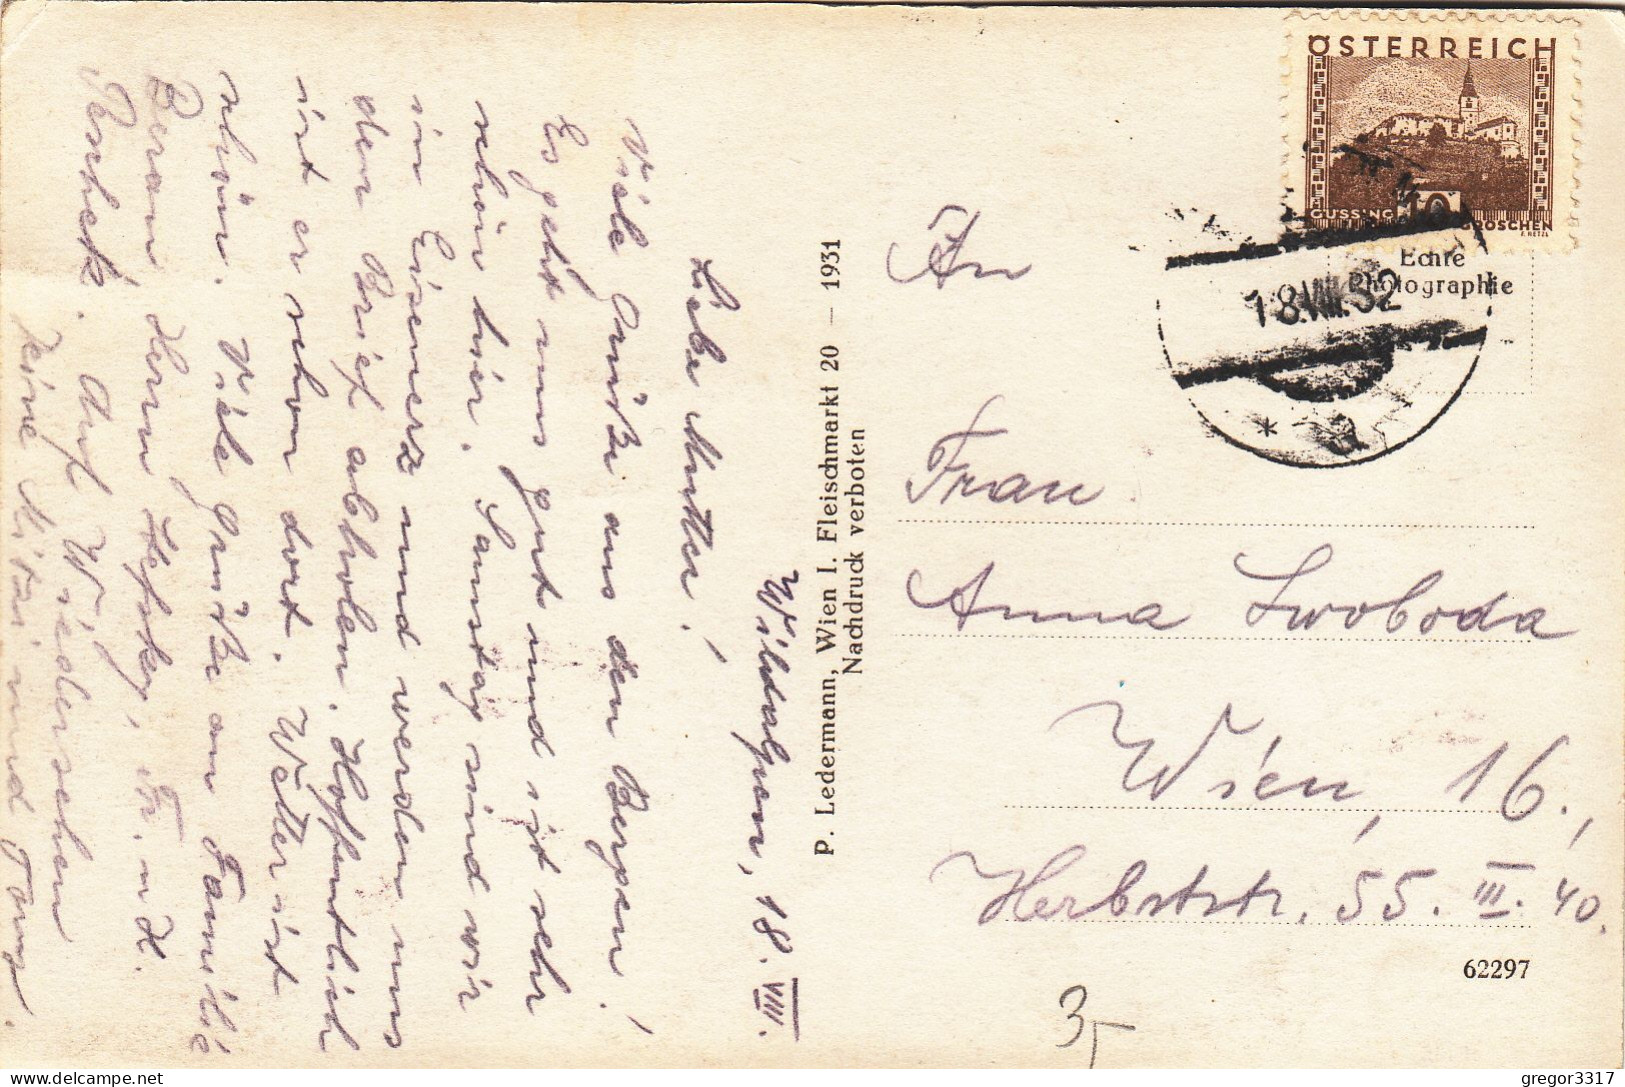 Wildalpen, 18. VIII.
Liebe Mutter!
Viele Grüße aus den Bergen!
Es geht uns gut und ist sehr
schön hier. Samstag sind wir
in Eisenerz und werden uns
den Brief abholen. Hoffentlich
ist er schon dort. Wetter ist
schön. Viele Grüße an Familie
Beran, Herrn Fr. u H.
Peschek. Auf Wiedersehen
Deine Mitzi und
P. Ledermann, Wien I. Fleischmarkt 20 — 1931
Nachdruck verboten
ÖSTERREICH
GÜSSING 10 GROSCHEN
Echte
Photographie
18.VIII.32
* a
An
Frau
Anna Swoboda
Wien, 16.,
Herbststr. 55. III. 40.
62297
3,-
delcampe.net
gregor3317